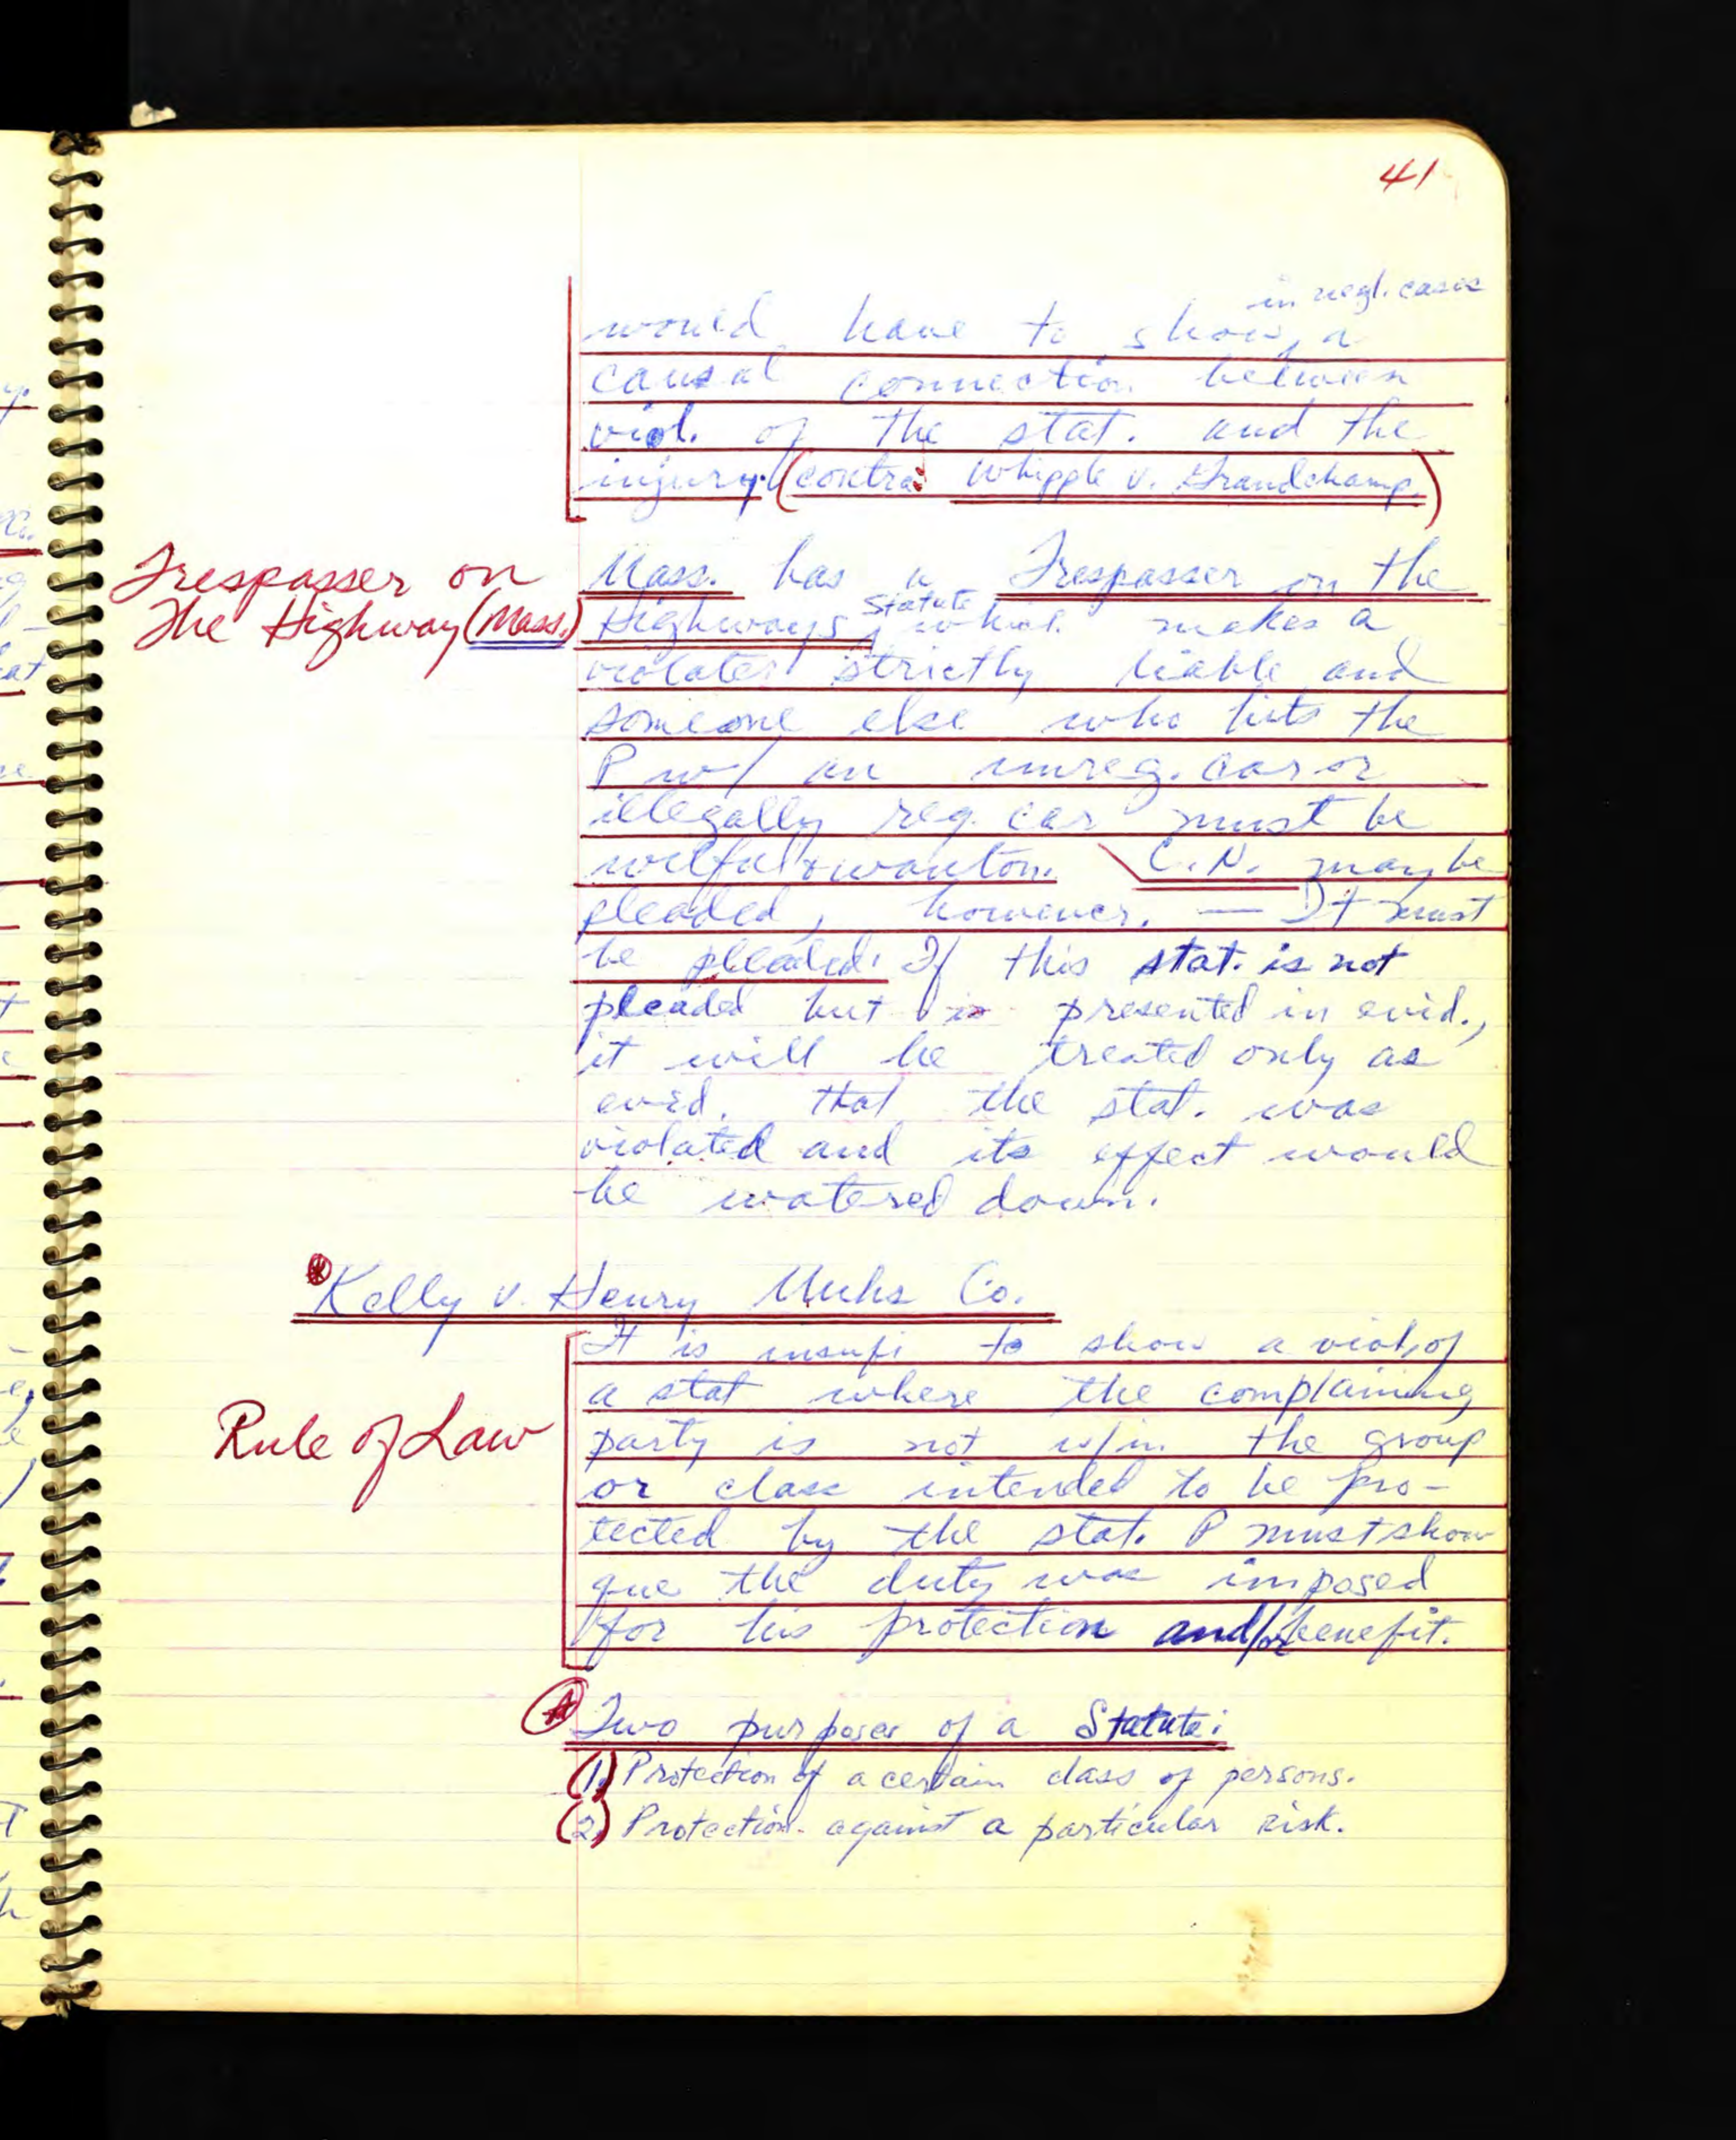 41
in negl. cases
would have to show, a
causal connection between
viol. of the stat. and the
injury. (contra: Whipple v. Grandchamp.)
Trespasser on
The Highway (Mass.)
Mass. has a Trespasser on the
Statute
Highways, which makes a
violater strictly liable and
someone else who hits the
P w/ an unreg. car or
illegally reg. car must be
wilful & wanton. C.N. may be
pleaded, however. — It must
be pleaded. If this stat. is not
pleaded but is presented in evid.,
it will be treated only as
evid. that the stat. was
violated and its effect would
be watered down.
Kelly v. Henry Muhs Co.
Rule of Law
It is insuf. to show a viol. of
a stat where the complaining
party is not w/in the group
or class intended to be pro-
tected by the stat. P must show
que the duty was imposed
for his protection and/or benefit.
Two purposes of a Statute:
(1) Protection of a certain class of persons.
(2) Protection against a particular risk.